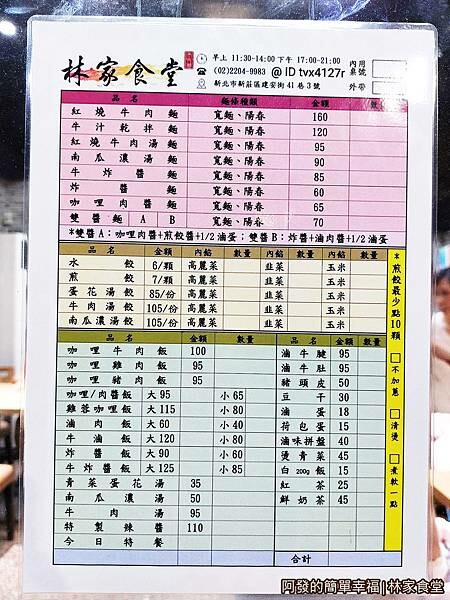 林家食堂
早上 11:30-14:00 下午 17:00-21:00
(02)2204-9983 @ ID tvx4127r
新北市新莊區建安街41巷3號
內用
桌號
外帶
品名 麵條種類 金額 數
紅燒牛肉麵 寬麵、陽春 160
牛汁乾拌麵 寬麵、陽春 120
紅燒牛肉湯麵 寬麵、陽春 95
南瓜濃湯麵 寬麵、陽春 90
牛炸醬麵 寬麵、陽春 85
炸醬麵 寬麵、陽春 60
咖哩肉醬麵 寬麵、陽春 65
雙醬麵 A B 寬麵、陽春 70
*雙醬A：咖哩肉醬+煎餃醬+1/2滷蛋；雙醬B：炸醬+滷肉醬+1/2滷蛋
品名 金額 內餡 數量 內餡 數量 內餡 數量
水餃 6/顆 高麗菜 韭菜 玉米
煎餃 7/顆 高麗菜 韭菜 玉米
蛋花湯餃 85/份 高麗菜 韭菜 玉米
牛肉湯餃 105/份 高麗菜 韭菜 玉米
南瓜濃湯餃 105/份 高麗菜 韭菜 玉米
品名 金額 數量
咖哩牛肉飯 100
咖哩雞肉飯 95
咖哩豬肉飯 95
咖哩/肉醬飯 大95 小65
雞蓉咖哩飯 大115 小80
滷肉飯 大60 小40
牛滷飯 大120 小80
炸醬飯 大90 小60
牛炸醬飯 大125 小85
青菜蛋花湯 35
南瓜濃湯 50
牛肉湯 95
特製辣醬 110
今日特餐
品名 金額 數量
滷牛腱 95
滷牛肚 95
豬頭皮 50
豆干 30
滷蛋 18
荷包蛋 15
滷味拼盤 40
燙青菜 45
白200g飯 15
紅茶 25
鮮奶茶 45
合計
*煎餃最少點10顆
不加蔥
清燙
煮軟一點
阿發的簡單幸福|林家食堂